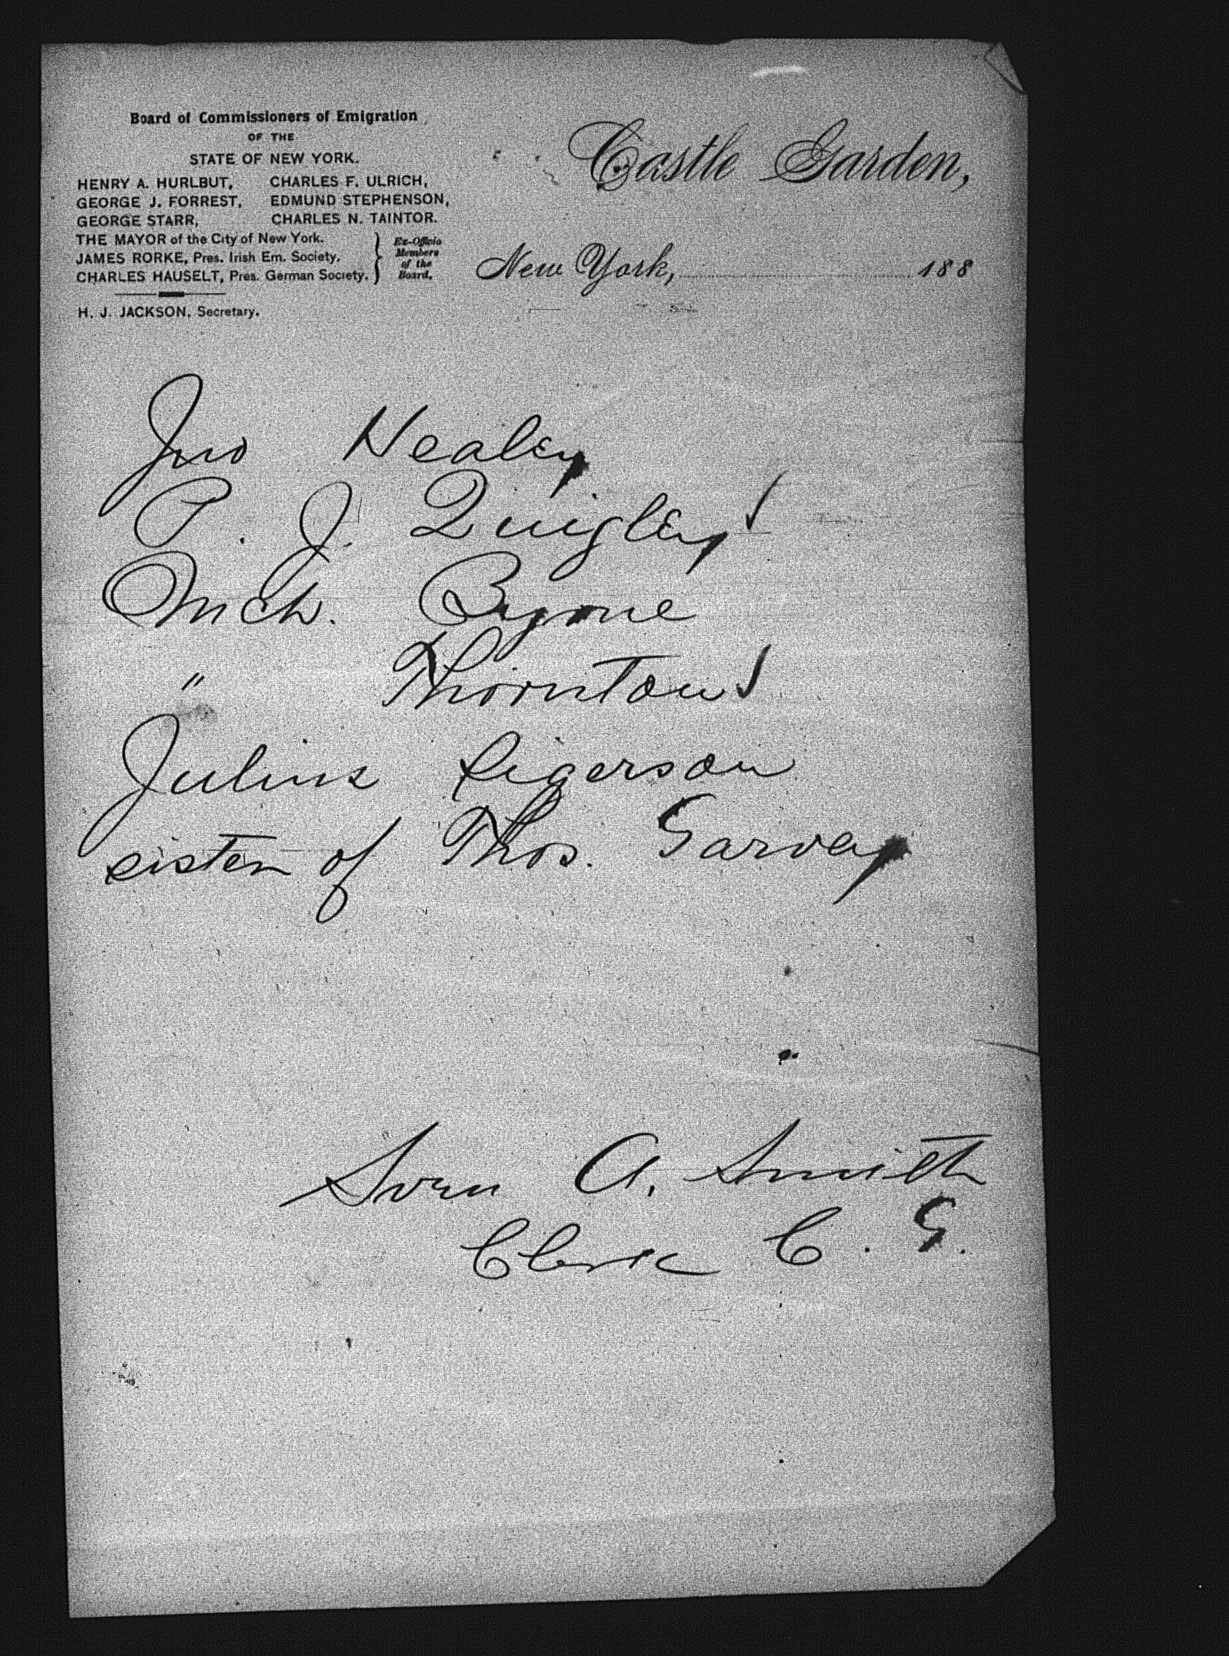 Board of Commissioners of Emigration
OF THE
STATE OF NEW YORK.
HENRY A. HURLBUT, CHARLES F. ULRICH,
GEORGE J. FORREST, EDMUND STEPHENSON,
GEORGE STARR, CHARLES N. TAINTOR.
THE MAYOR of the City of New York.
JAMES RORKE, Pres. Irish Em. Society.
CHARLES HAUSELT, Pres. German Society.
Ex-Officio
Members
of the
Board.
H. J. JACKSON, Secretary.
Castle Garden,
New York, 188
Jno Nealey
P. J. Quigley ✓
Mch. Byrne
" Thornton ✓
Julius Sigerson
sister of Thos. Garvey
Sven A. Smith
Clerk C. G.